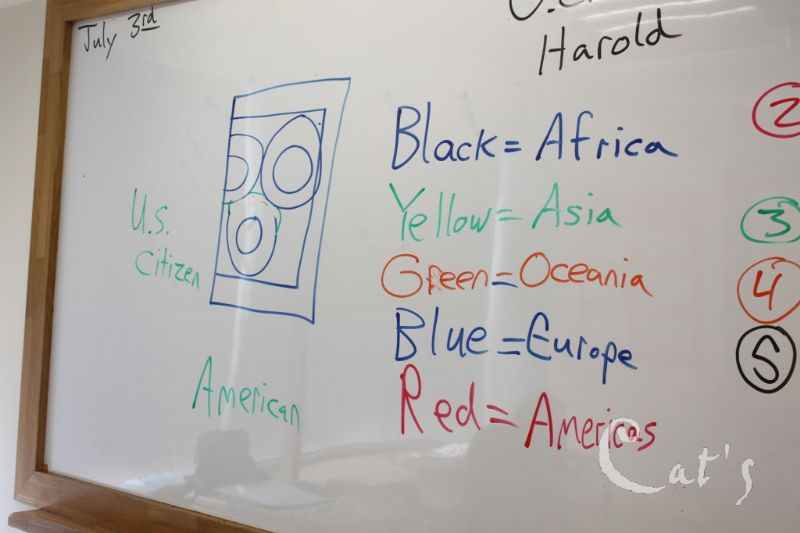 July 3rd
Harold
Black = Africa
2
U.S.
Citizen
Yellow = Asia
3
Green = Oceania
4
Blue = Europe
5
American
Red = Americas
Cat's